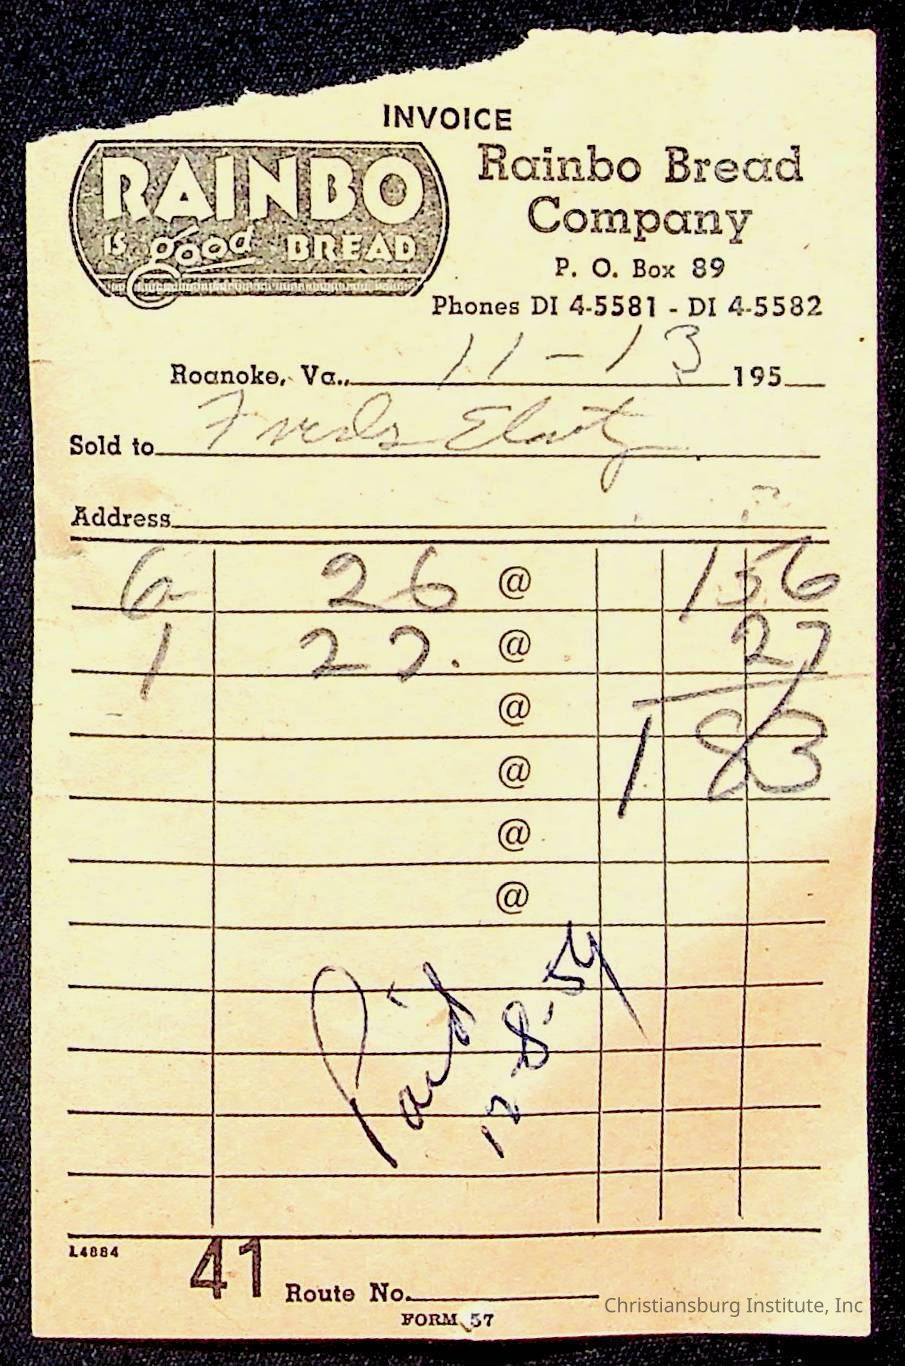 INVOICE
RAINBO
IS good BREAD
Rainbo Bread
Company
P. O. Box 89
Phones DI 4-5581 - DI 4-5582
Roanoke, Va., 11-13 195
Sold to
Address
6 26 @ 156
1 27. @ 27
@ 183
@
@
@
Paid
12-8-54
L4884
41 Route No.
FORM 57
Christiansburg Institute, Inc